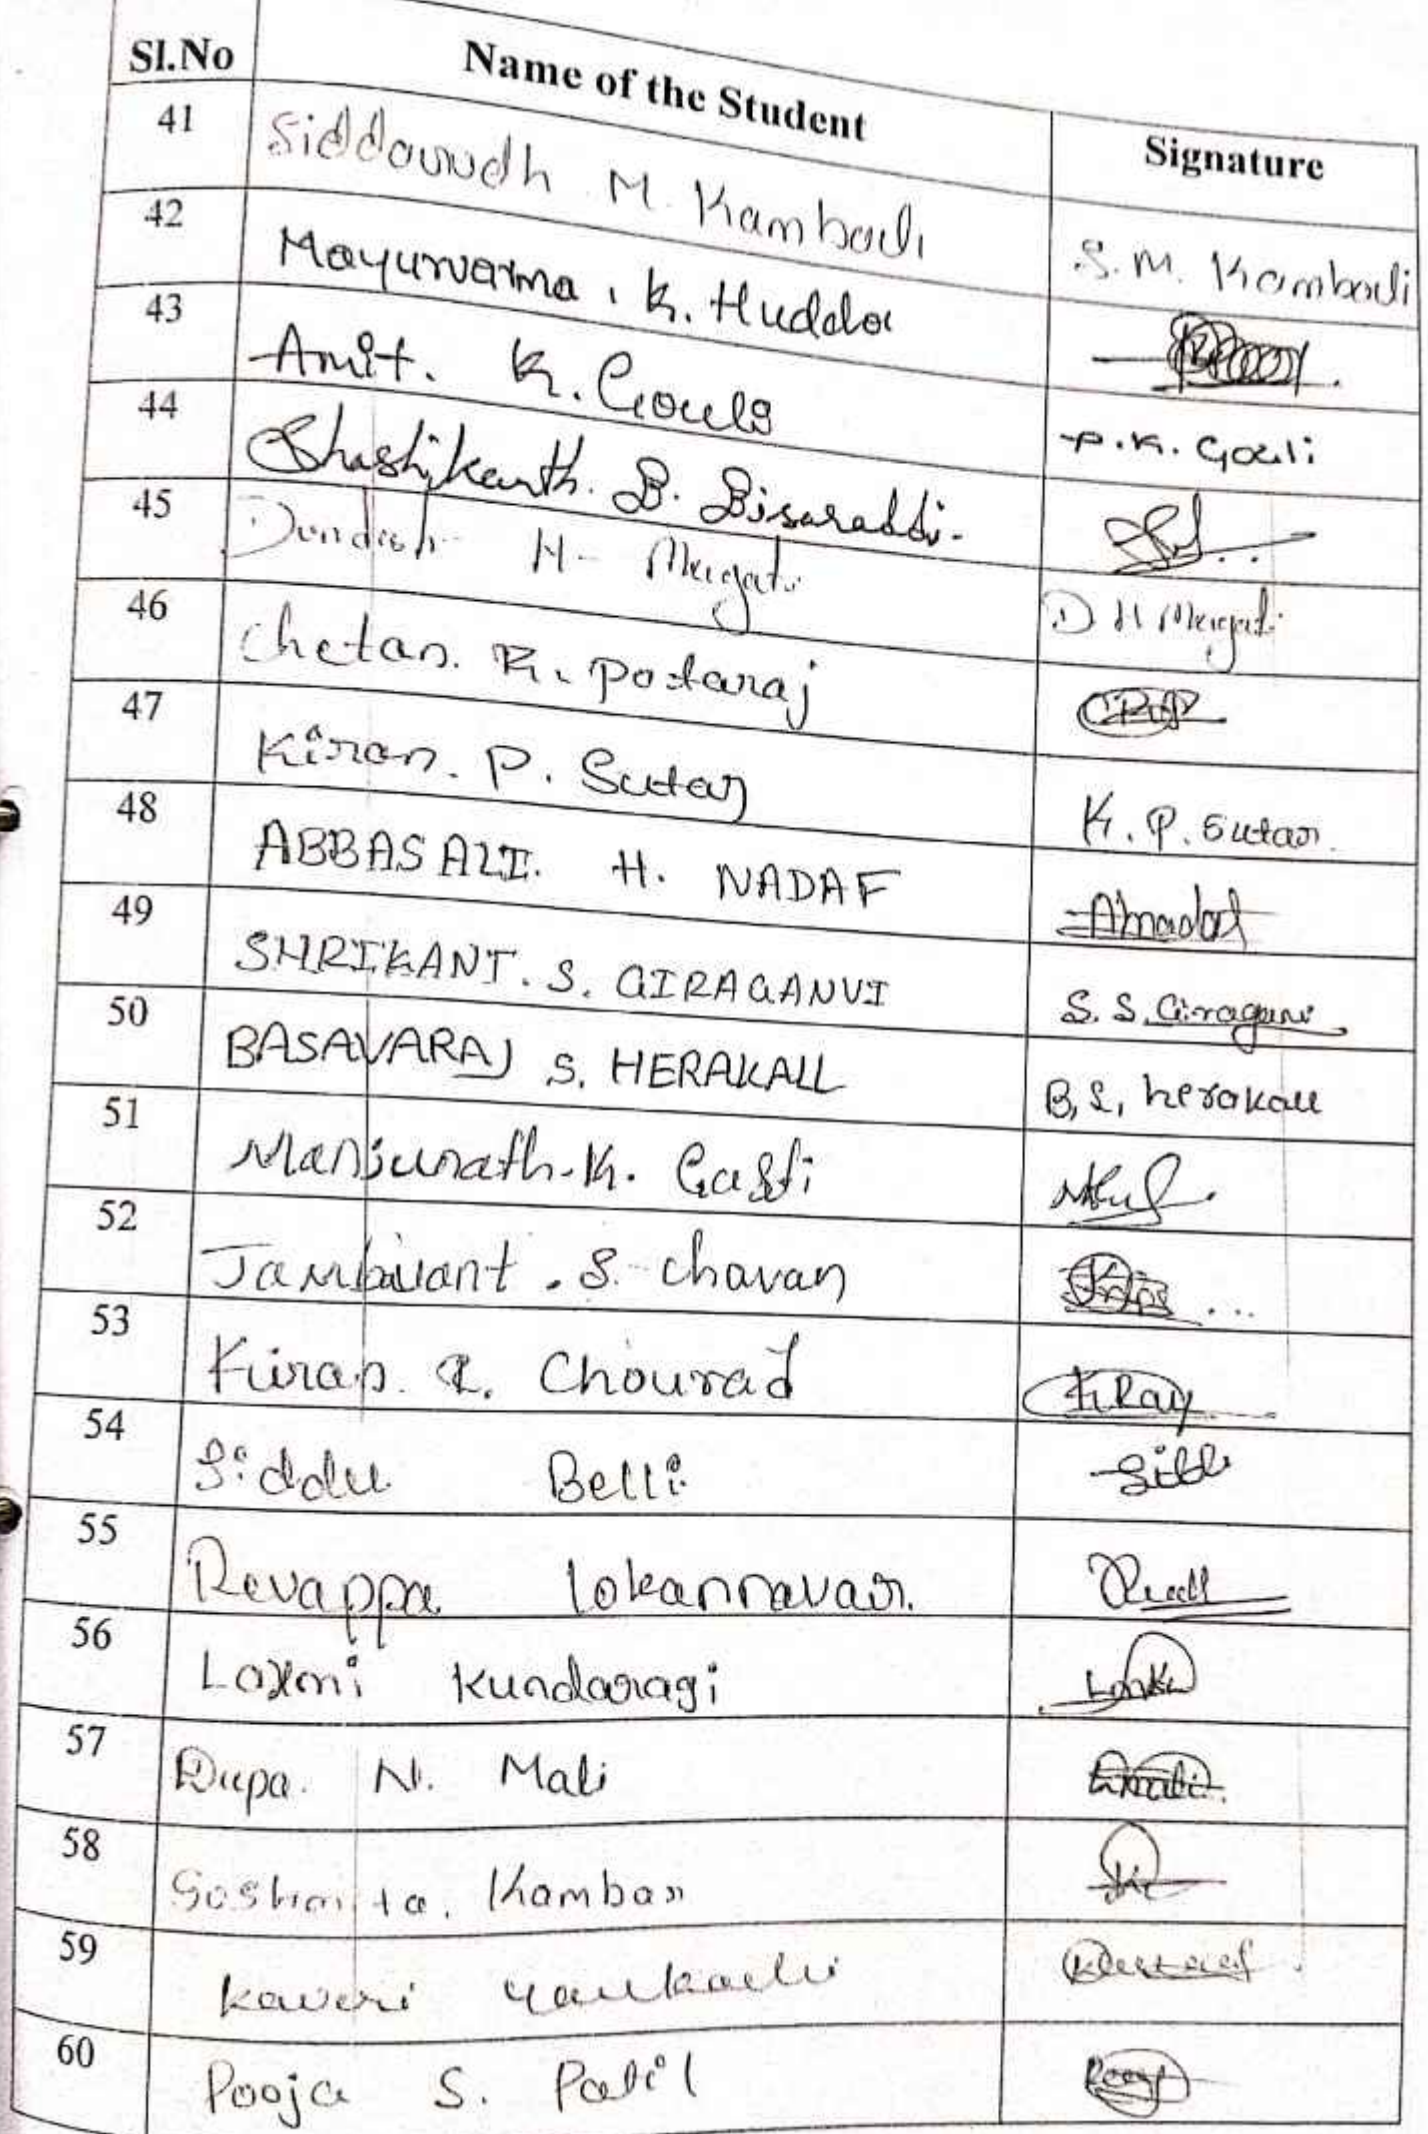 Sl.No Name of the Student Signature
41 Siddarudh M. Kambali S. M. Kambali
42 Mayurvarma . K. Huddar
43 Amit. K. Gouli A. K. Gouli
44 Shashikanth. B. Bisaraddi.
45 Dundesh H- Mugati D H Mugati
46 Chetan. R. Potaraj
47 Kiran. P. Sutar K. P. Sutar.
48 ABBASALI. H. NADAF
49 SHRIKANT. S. GIRAGANVI S. S. Giraganvi
50 BASAVARAJ S. HERAKALL B, S, herakall
51 Manjunath. K. Gasti
52 Jambuvant . S. Chavan
53 Kiran. R. Chourad
54 Siddu Belli
55 Revappa lokannavar.
56 Laxmi Kundaragi
57 Rupa. N. Mali
58 Soshmita. Kambar
59 Kaveri
60 Pooja S. Patil Pooja